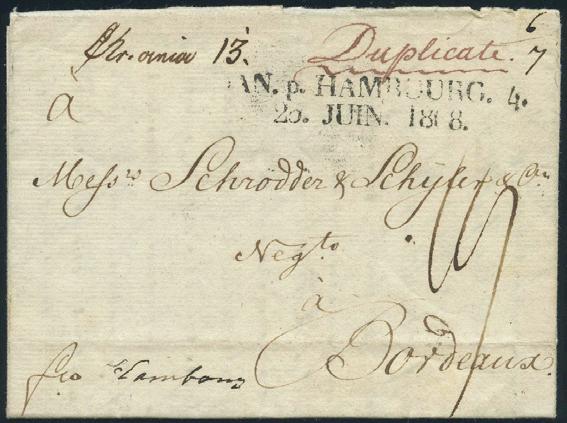 Chr.ania 13. Duplicate. 6/7
AN. p. HAMBOURG. 4.
25. JUIN. 1808.
a
Messrs Schrodder & Schyler & Co
Negto
à
Bordeaux.
fco Hambourg